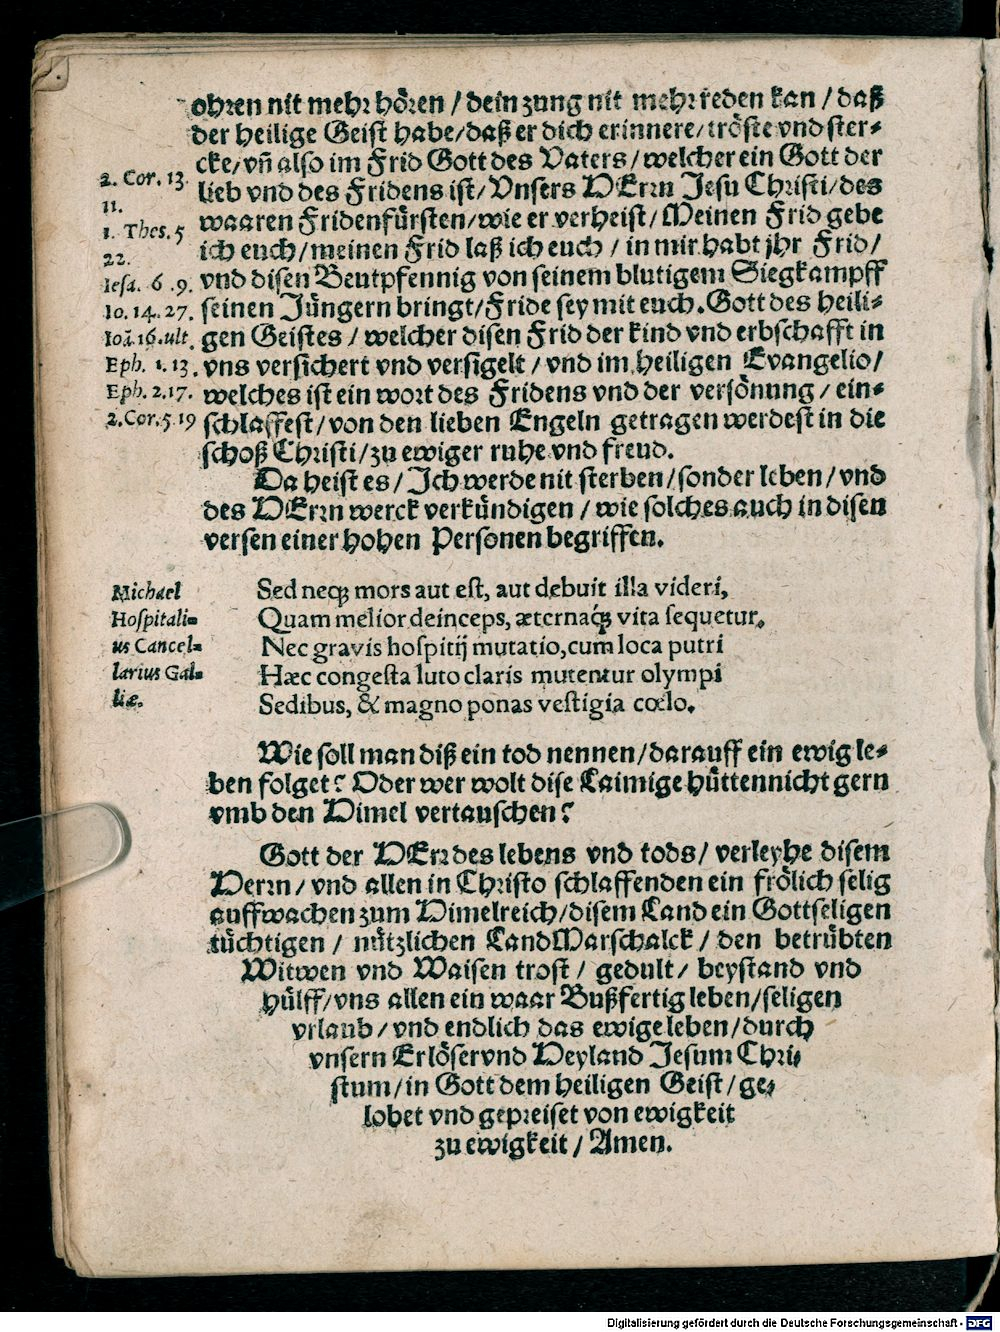 ohren nit mehr hören / dein zung nit mehr reden kan / daß
der heilige Geist habe / daß er dich erinnere / tröste vnd ster-
cke / vñ also im Frid Gott des Vaters / welcher ein Gott der
2. Cor. 13.
lieb vnd des Fridens ist / Vnsers HErrn Jesu Christi / des
11.
waaren Fridenfürsten / wie er verheist / Meinen Frid gebe
1. Thes. 5
ich euch / meinen Frid laß ich euch / in mir habt jhr Frid /
22.
vnd disen Beutpfennig von seinem blutigem Siegkampff
Iesa. 6 .9.
seinen Jüngern bringt / Fride sey mit euch. Gott des heili-
Io. 14. 27.
gen Geistes / welcher disen Frid der kind vnd erbschafft in
Ioã. 16. ult.
vns versichert vnd versigelt / vnd im heiligen Evangelio /
Eph. 1. 13.
welches ist ein wort des Fridens vnd der versönung / ein-
Eph. 2. 17.
schlaffest / von den lieben Engeln getragen werdest in die
2. Cor. 5 19
schoß Christi / zu ewiger ruhe vnd freud.
Da heist es / Ich werde nit sterben / sonder leben / vnd
des HErrn werck verkündigen / wie solches auch in disen
versen einer hohen Personen begriffen.
Michael
Hospitali-
us Cancel-
larius Gal-
liæ.
Sed neq; mors aut est, aut debuit illa videri,
Quam melior deinceps, æternaq́; vita sequetur.
Nec gravis hospitij mutatio, cum loca putri
Hæc congesta luto claris mutentur olympi
Sedibus, & magno ponas vestigia cœlo.
Wie soll man diß ein tod nennen / darauff ein ewig le-
ben folget? Oder wer wolt dise Laimige hüttennicht gern
vmb den Himel vertauschen?
Gott der HErr des lebens vnd tods / verleyhe disem
Herrn / vnd allen in Christo schlaffenden ein frölich selig
auffwachen zum Himelreich / disem Land ein Gottseligen
tüchtigen / nützlichen LandMarschalck / den betrübten
Witwen vnd Waisen trost / gedult / beystand vnd
hülff / vns allen ein waar Bußfertig leben / seligen
vrlaub / vnd endlich das ewige leben / durch
vnsern Erlöser vnd Heyland Jesum Chri-
stum / in Gott dem heiligen Geist / ge-
lobet vnd gepreiset von ewigkeit
zu ewigkeit / Amen.
Digitalisierung gefördert durch die Deutsche Forschungsgemeinschaft - DFG